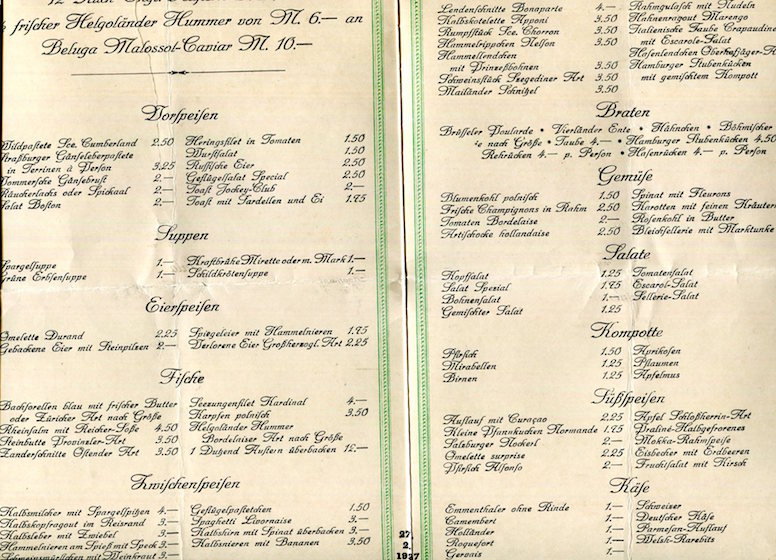 ½ frischer Helgoländer Hummer von M. 6.— an
Beluga Malossol-Caviar M. 10.—
Vorspeisen
Wildpastete Sce. Cumberland 2,50
Straßburger Gänseleberpastete
in Terrinen à Person 3,25
Pommersche Gänsebrust 2.—
Räucherlachs oder Spickaal 2.—
Salat Boston 2.—
Heringsfilet in Tomaten 1.50
Wurstsalat 1.50
Russische Eier 2.50
Geflügelsalat Special 2.50
Toast Jockey-Club 2.—
Toast mit Sardellen und Ei 1.75
Suppen
Spargelsuppe 1.—
Grüne Erbsensuppe 1.—
Kraftbrühe Mirette oder m. Mark 1.—
Schildkrötensuppe 1.—
Eierspeisen
Omelette Durand 2.25
Gebackene Eier mit Steinpilzen 2.—
Spiegeleier mit Hammelnieren 1.75
Verlorene Eier Großherzogl. Art 2.25
Fische
Bachforellen blau mit frischer Butter
oder Züricher Art nach Größe
Rheinsalm mit Reicher-Soße 4.50
Steinbutte Provinzler-Art 3.50
Zanderschnitte Ostender Art 3.50
Seezungenfilet Kardinal 4.—
Karpfen polnisch 3.50
Helgoländer Hummer
Bordelaiser Art nach Größe
1 Dutzend Austern überbacken 12.—
Zwischenspeisen
Kalbsmilcher mit Spargelspitzen 4.—
Kalbskopfragout im Reisrand 3.—
Kalbsleber mit Zwiebel 3.—
Hammelnieren am Spieß mit Speck 3.—
Schweinswürstchen mit Weinkraut 3.—
Geflügelpastetchen 1.50
Spaghetti Livornaise 3.—
Kalbshirn mit Spinat überbacken 3.—
Kalbsnieren mit Bananen 3.50
Lendenschnitte Bonaparte 4.—
Kalbskotelette Apponi 3.50
Rumpfstück Sce. Chorron 3.50
Hammelrippchen Nelson 3.50
Hammellendchen
mit Prinzeßbohnen 3.50
Schweinsstück Szegediner Art 3.50
Mailänder Schnitzel 3.50
Rahmgulasch mit Nudeln
Hahnenragout Marengo
Italienische Taube Crapaudine
mit Escarole-Salat
Hasenlendchen Oberhofjäger-A
Hamburger Stubenkücken
mit gemischtem Kompott
Braten
Brüsseler Poularde • Vierländer Ente • Hähnchen • Böhmischer
je nach Größe • Taube 4.— • Hamburger Stubenkücken 4.50
Rehrücken 4.— p. Person • Hasenrücken 4.— p. Person
Gemüse
Blumenkohl polnisch 1.50
Frische Champignons in Rahm 2.50
Tomaten Bordelaise 2.—
Artischocke hollandaise 2.50
Spinat mit Fleurons
Karotten mit feinen Kräutern
Rosenkohl in Butter
Bleichsellerie mit Marktunke
Salate
Kopfsalat 1.25
Salat Spezial 1.75
Bohnensalat 1.—
Gemischter Salat 1.25
Tomatensalat
Escarol-Salat
Sellerie-Salat
Kompotte
Pfirsich 1.50
Mirabellen 1.25
Birnen 1.25
Aprikosen
Pflaumen
Apfelmus
Süßspeisen
Auflauf mit Curaçao 2.25
Kleine Pfannkuchen Normande 1.75
Salzburger Nockerl 2.—
Omelette surprise 2.25
Pfirsich Alfonso 2.—
Apfel Schloßherrin-Art
Praliné-Halbgefrorenes
Mokka-Rahmspeise
Eisbecher mit Erdbeeren
Fruchtsalat mit Kirsch
Käse
Emmenthaler ohne Rinde 1.—
Camembert 1.—
Holländer 1.—
Roquefort 1.—
Gervais 1.—
Schweizer
Deutscher Käse
Parmesan-Auflauf
Welsh-Rarebits
27
2
1937